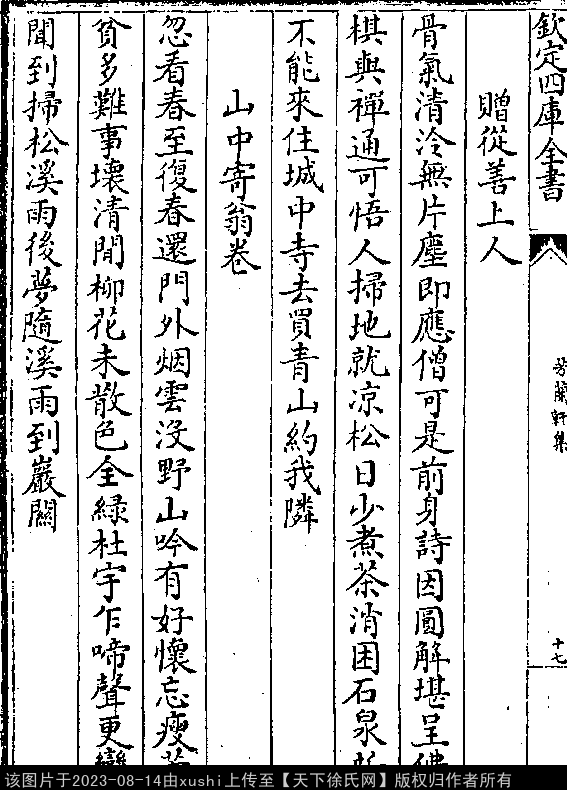 欽定四庫全書
芳蘭軒集
十七
贈從善上人
骨氣清泠無片塵即應僧可是前身詩因圓解堪呈佛
棋與禪通可悟人掃地就凉松日少煮茶消困石泉
不能來住城中寺去買青山約我隣
山中寄翁卷
忽看春至復春還門外烟雲沒野山吟有好懷忘瘦
貧多難事壞清閒柳花未散色全綠杜宇乍啼聲更
聞到掃松溪雨後夢隨溪雨到巖關
该图片于2023-08-14由xushi上传至【天下徐氏网】版权归作者所有